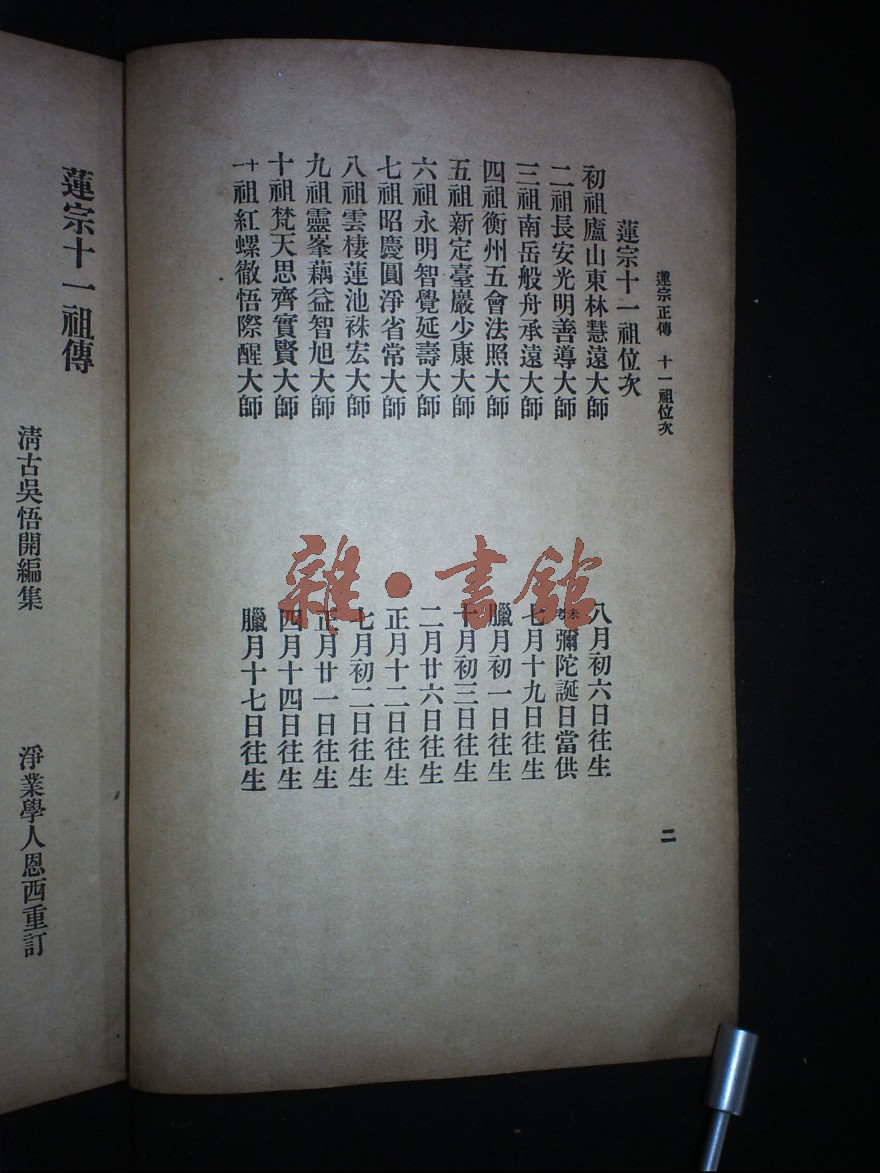 蓮宗正傳　十一祖位次
二
蓮宗十一祖位次
初祖廬山東林慧遠大師　八月初六日往生
二祖長安光明善導大師　未考彌陀誕日當供
三祖南岳般舟承遠大師　七月十九日往生
四祖衡州五會法照大師　臘月初一日往生
五祖新定臺巖少康大師　十月初三日往生
六祖永明智覺延壽大師　二月廿六日往生
七祖昭慶圓淨省常大師　正月十二日往生
八祖雲棲蓮池袾宏大師　七月初二日往生
九祖靈峯藕益智旭大師　正月廿一日往生
十祖梵天思齊實賢大師　四月十四日往生
十一祖紅螺徹悟際醒大師　臘月十七日往生
雜·書館
蓮宗十一祖傳
清古吳悟開編集　淨業學人恩西重訂